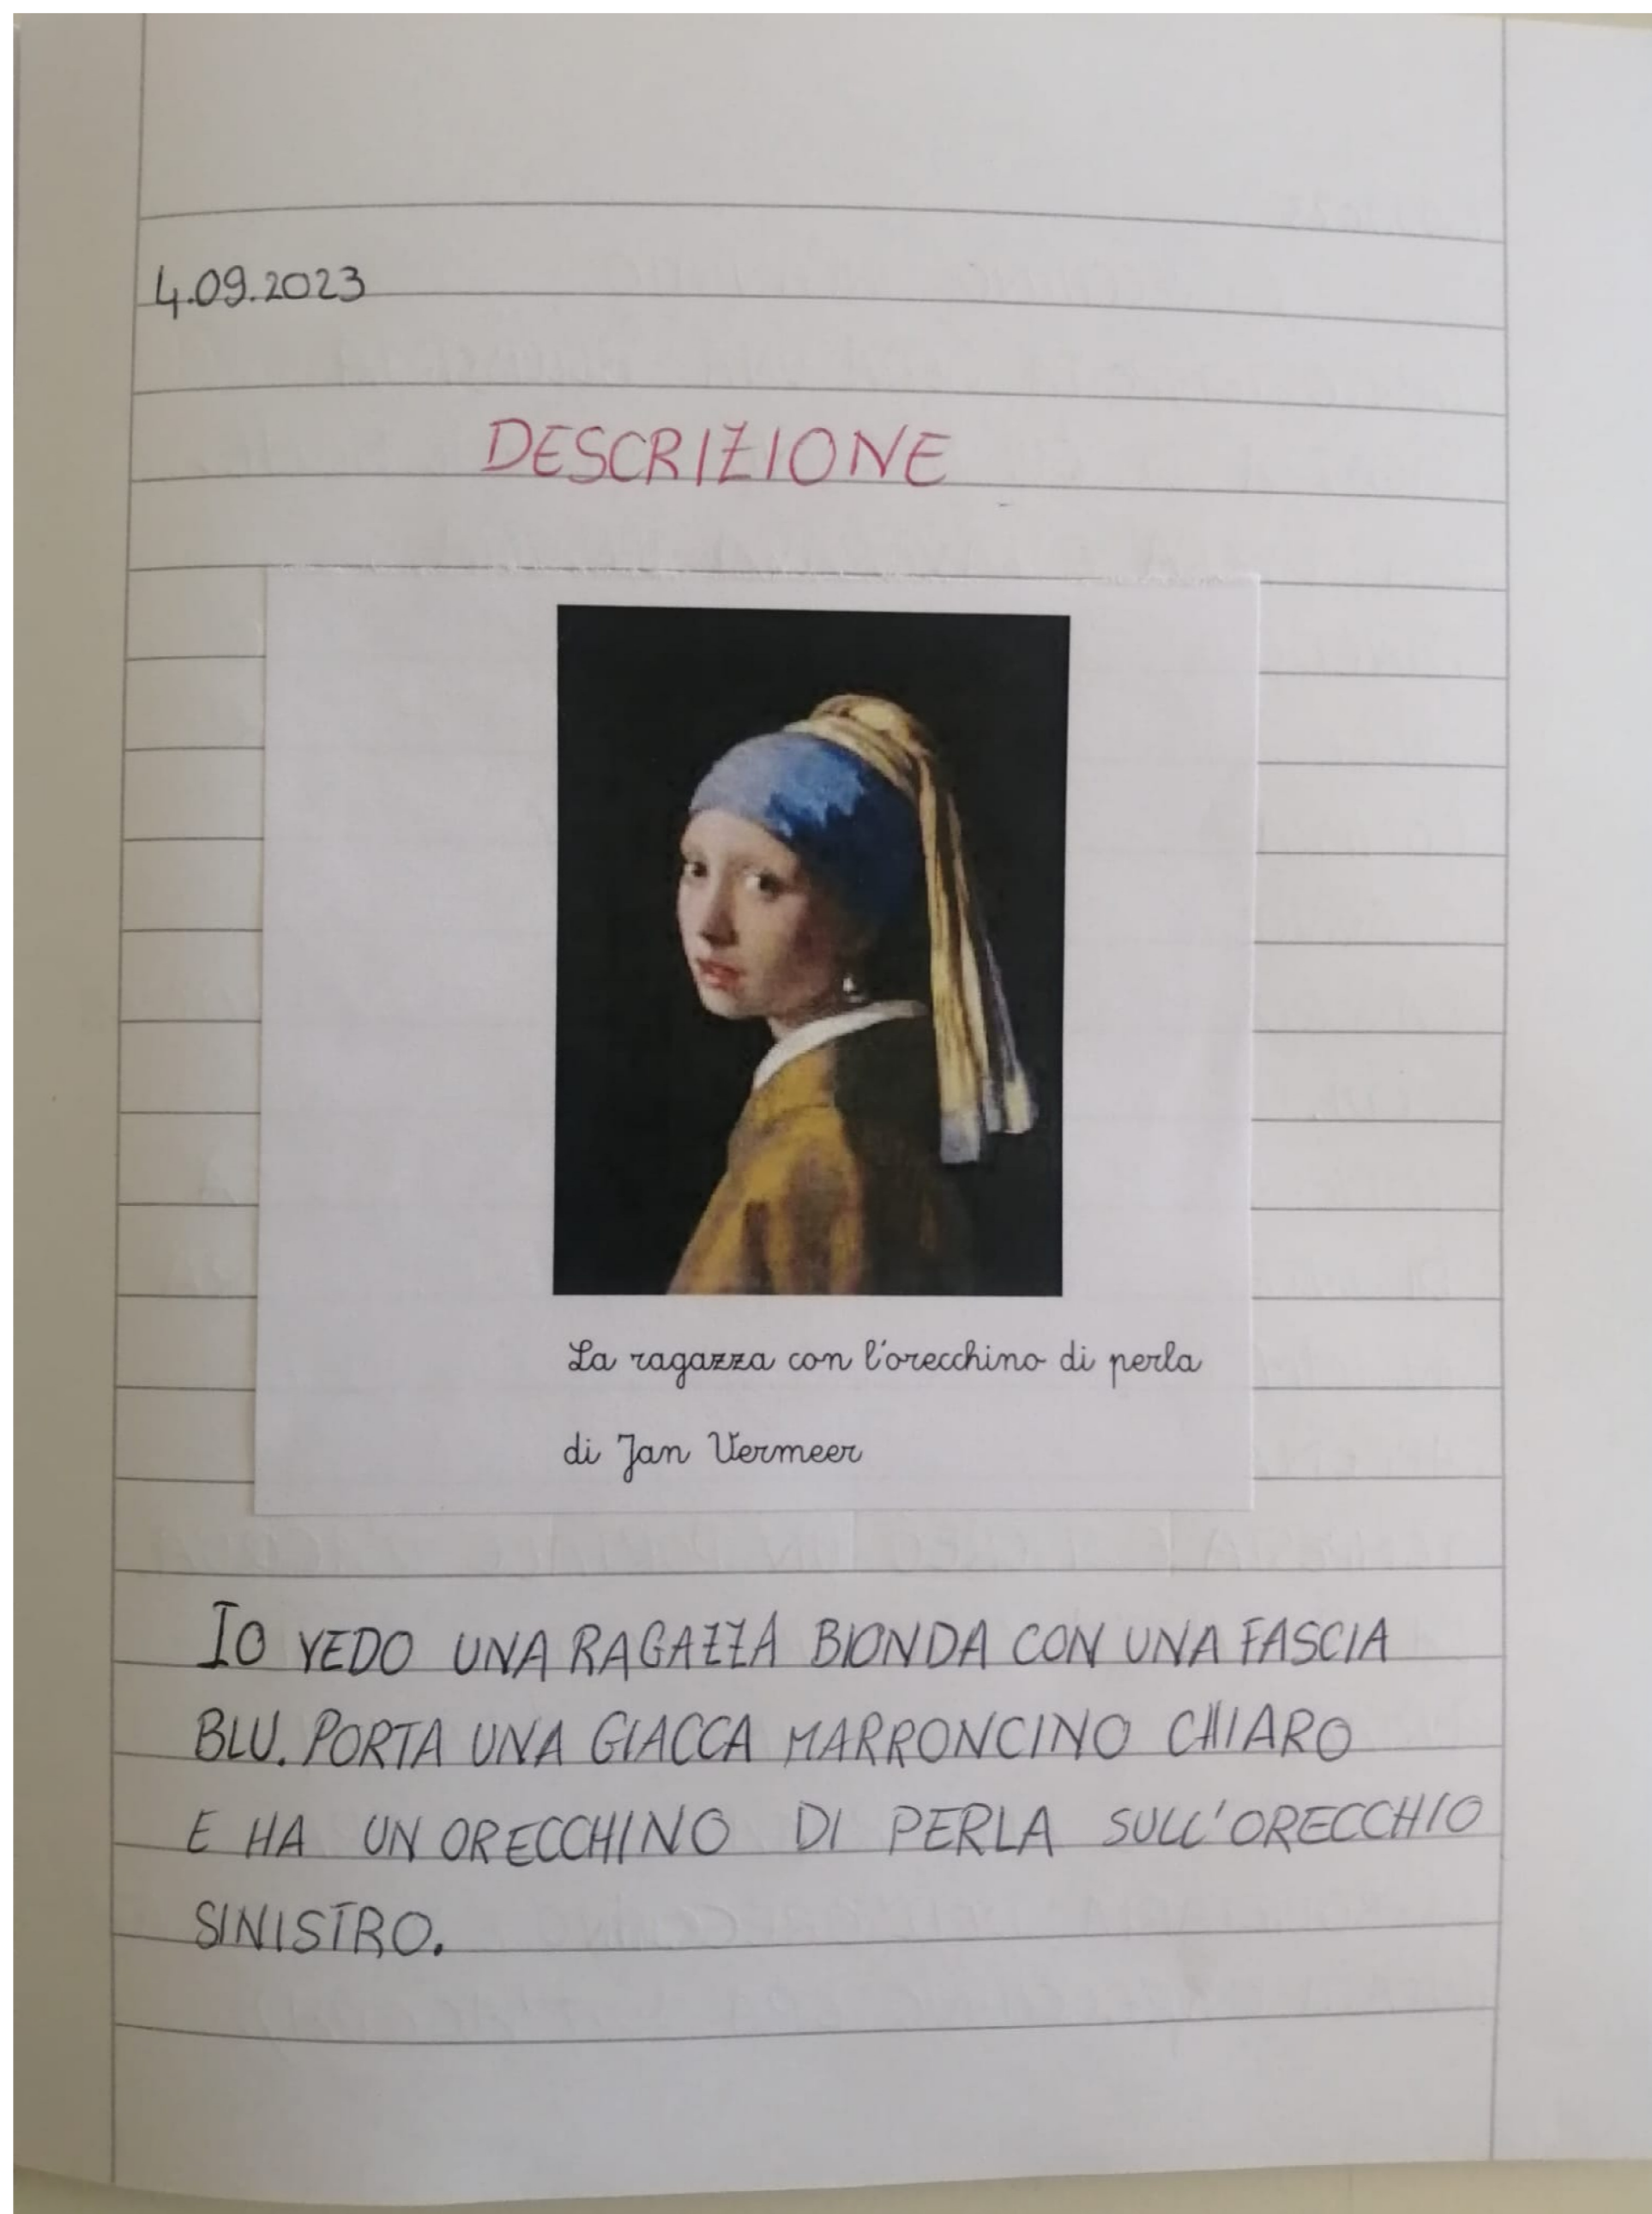 4.09.2023
DESCRIZIONE
La ragazza con l'orecchino di perla
di Jan Vermeer
IO VEDO UNA RAGAZZA BIONDA CON UNA FASCIA
BLU. PORTA UNA GIACCA MARRONCINO CHIARO
E HA UN ORECCHINO DI PERLA SULL'ORECCHIO
SINISTRO.